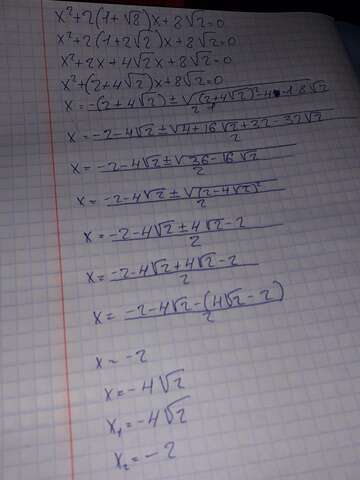 x²+2(1+√8)x+8√2=0
x²+2(1+2√2)x+8√2=0
x²+2x+4√2x+8√2=0
x²+(2+4√2)x+8√2=0
x=-(2+4√2)±√(2+4√2)²-4·1·8√2/2·1
x=-2-4√2±√4+16√2+32-32√2/2
x=-2-4√2±√36-16√2/2
x=-2-4√2±√(2-4√2)²/2
x=-2-4√2±4√2-2/2
x=-2-4√2+4√2-2/2
x=-2-4√2-(4√2-2)/2
x=-2
x=-4√2
x₁=-4√2
x₂=-2